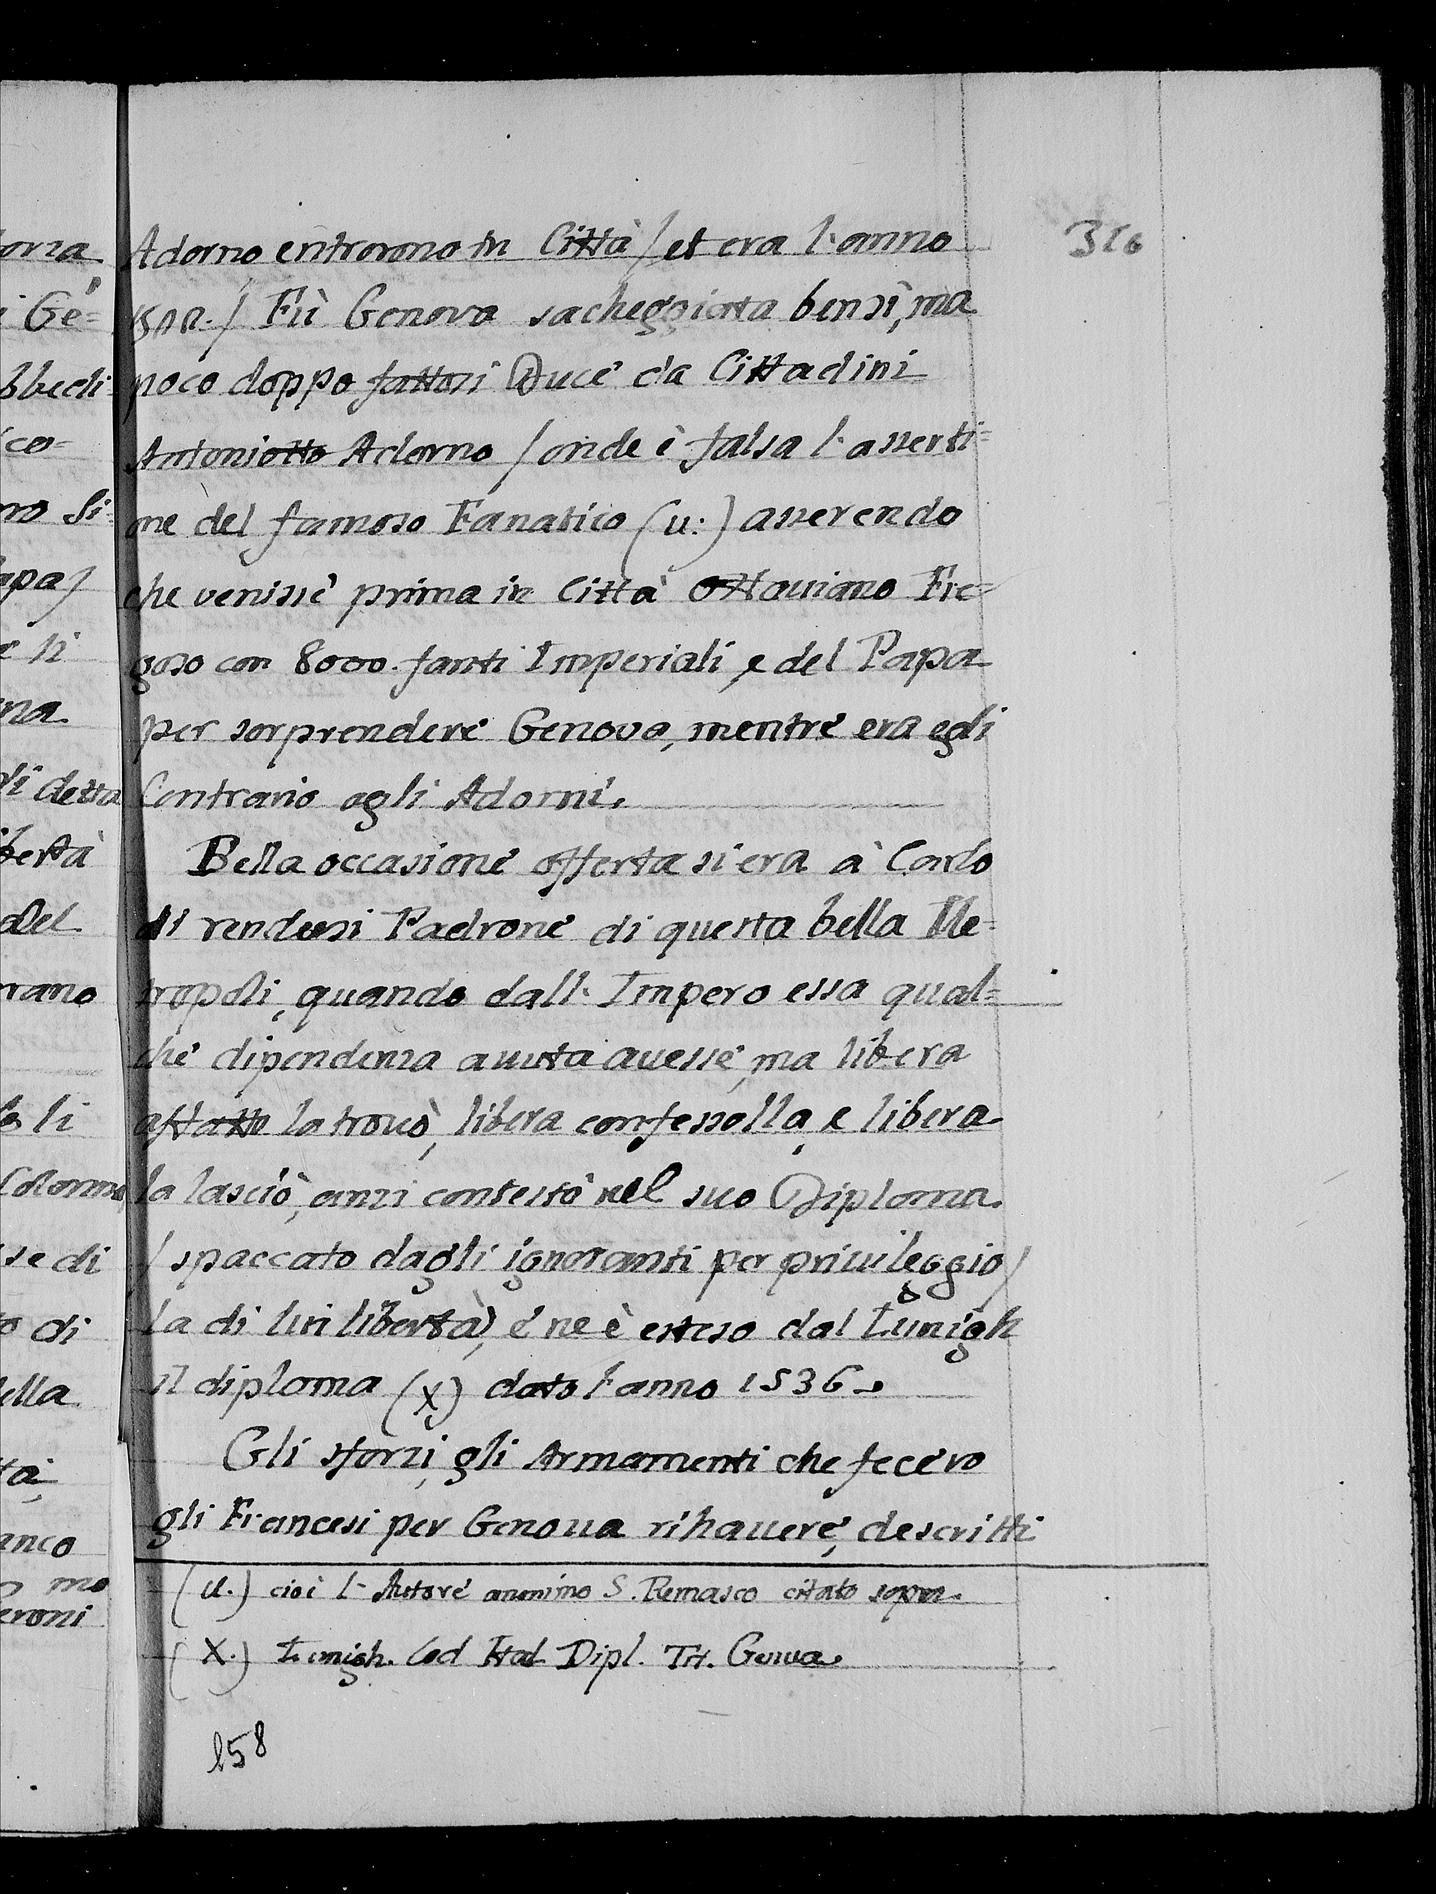 Adorno entrorono in Città / et era l'anno
1522. / Fù Genova sacheggiata bensì, ma
poco doppo fattosi Duce da Cittadini
Antoniotto Adorno / onde è falsa l'asserti=
one del famoso Fanatico (u:) asserendo
che venisse prima in Città Ottaviano Fre=
goso con 8000. fanti Imperiali, e del Papa
per sorprendere Genova, mentre era egli
Contrario agli Adorni.
Bella occasione offerta si era à Carlo
di rendersi Padrone di questa bella Me=
tropoli, quando dall' Impero essa qual=
che dipendenza auuta auesse, ma libera
affatto la trouò, libera confessolla, e libera
la lasciò, anzi contestò nel suo Diploma
/ spaccato dagli ignoranti per priuileggio /
la di lui libertà, e ne è esteso dal Lunigh
il diploma (X) dato l'anno 1536.
Gli sforzi, gli Armamenti che fecero
gli Francesi per Genoua rihauere, descritti
(u.) cioè l'Autore anonimo S. Remasco citato sopra.
(X.) Lunigh. Cod Ital Dipl. Tit. Genua.
316
258